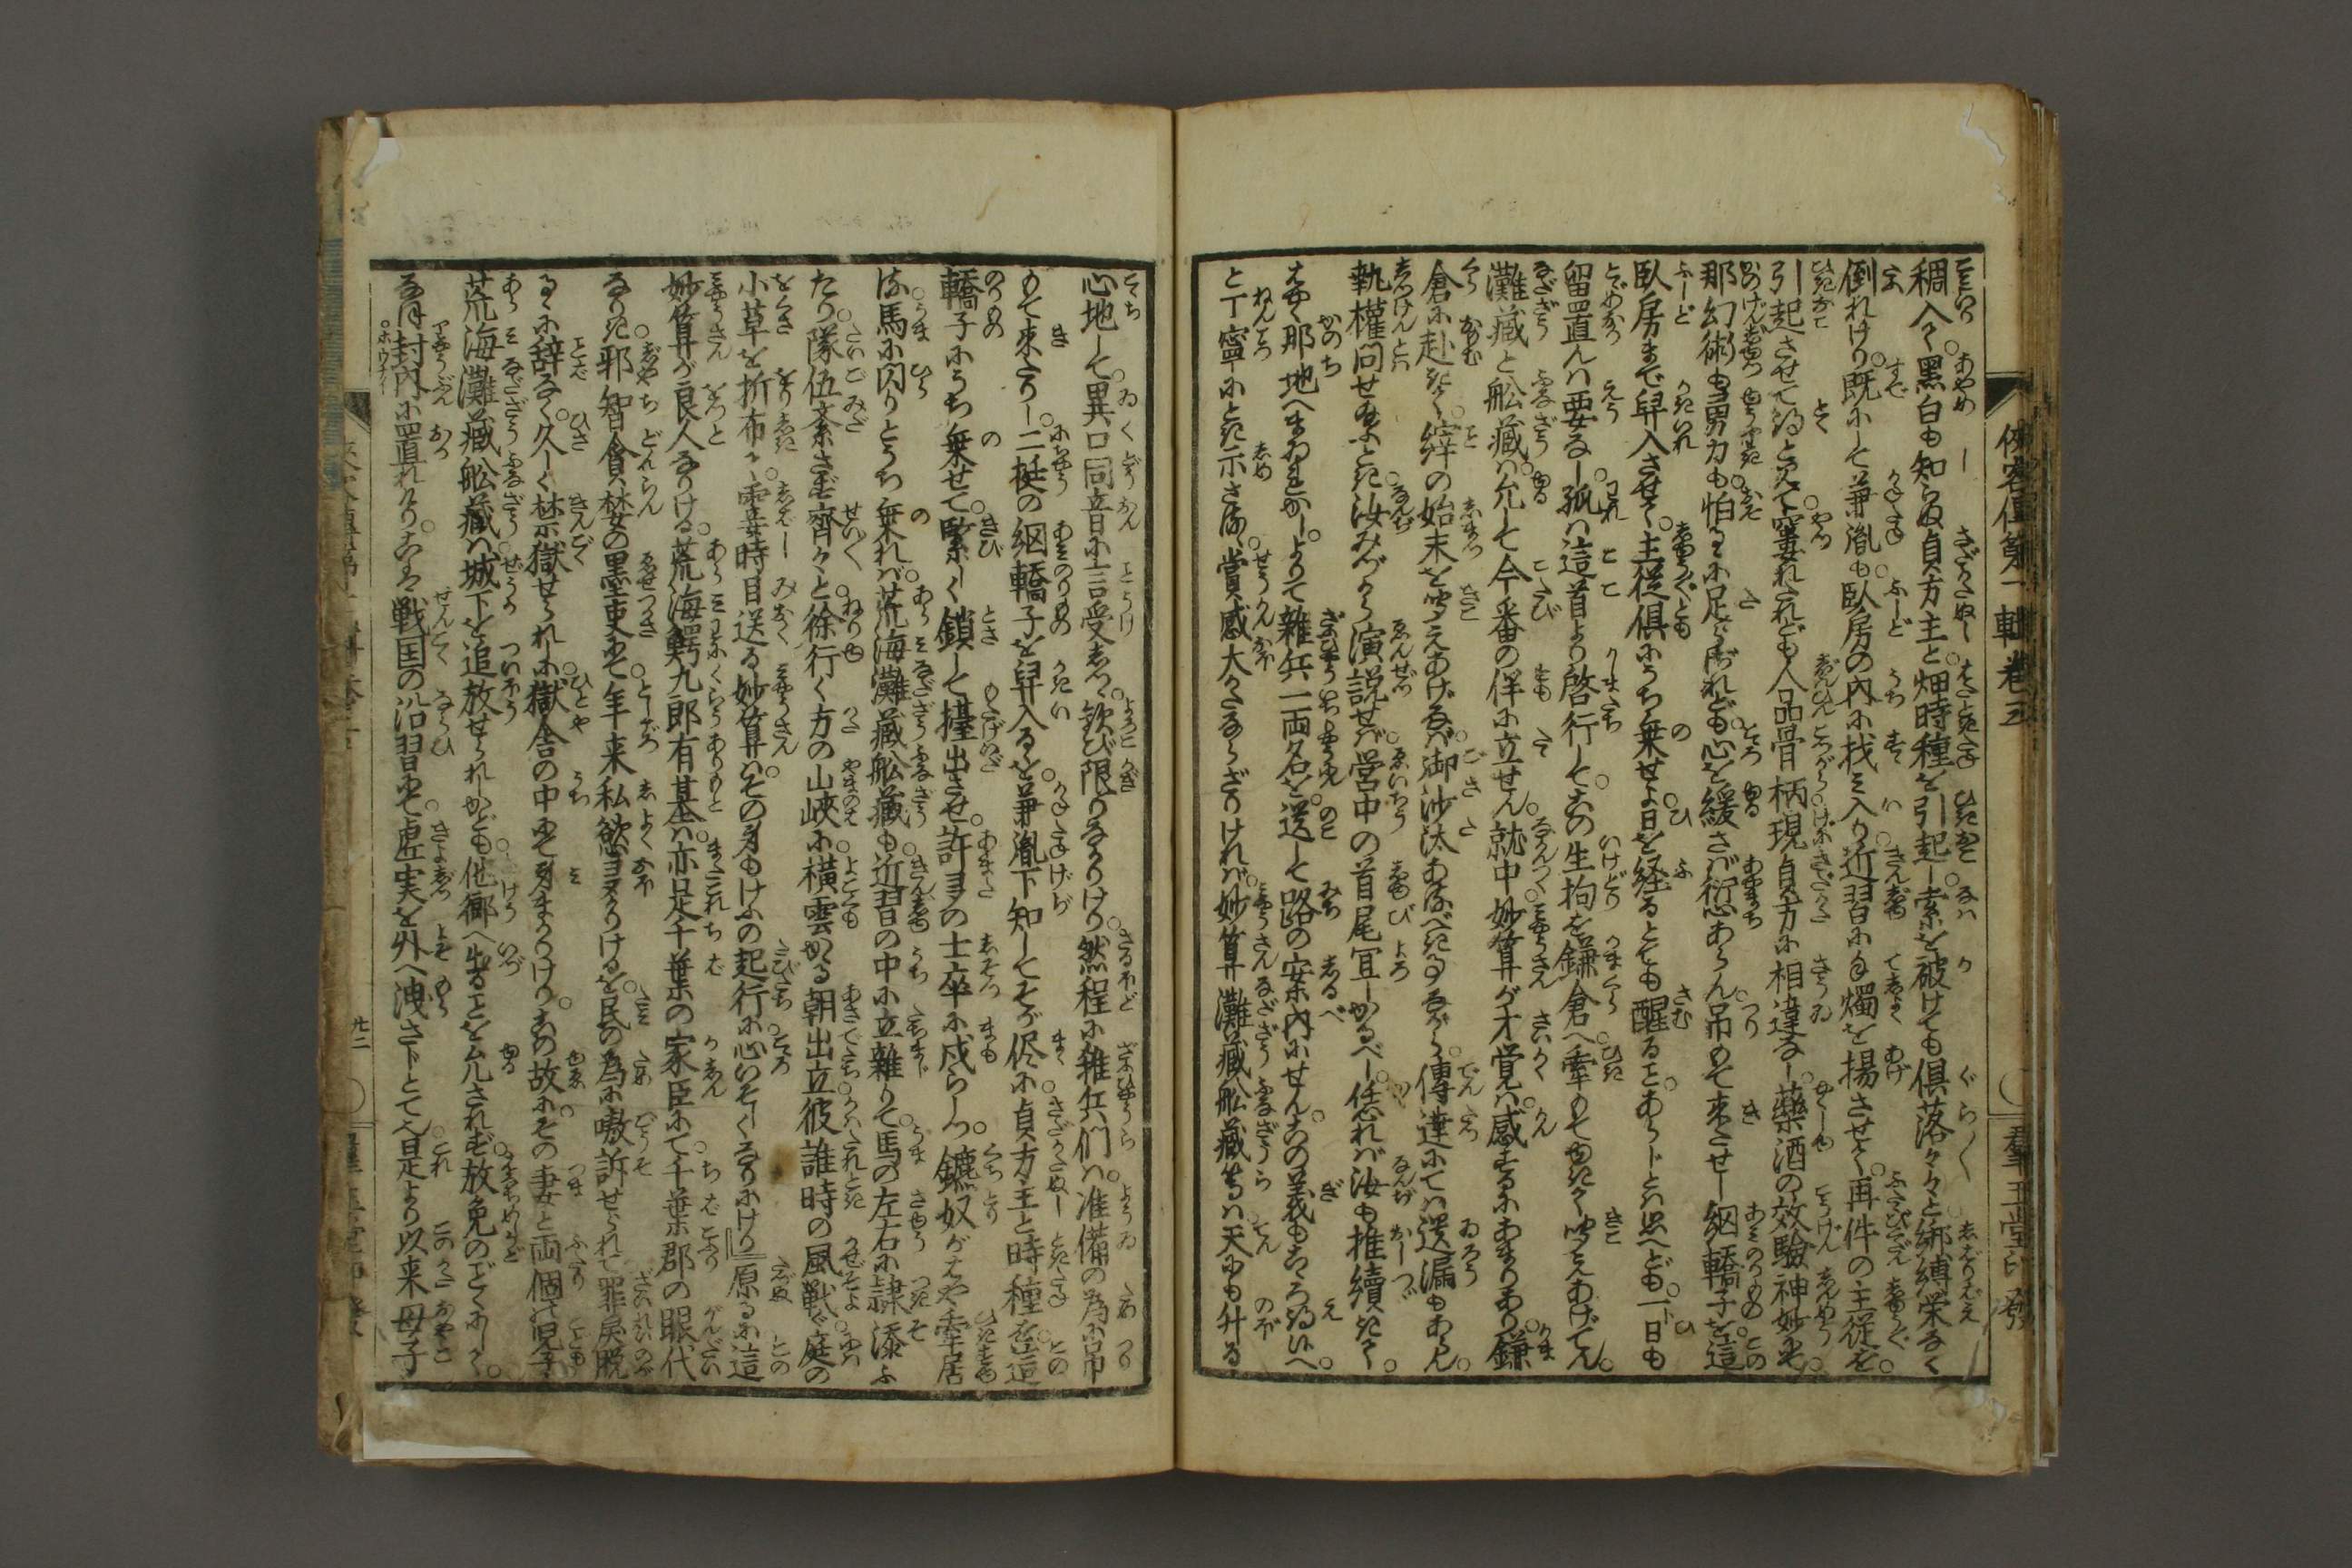 稠人々。黒白も知らぬ貞方主と。畑時種を引起し。索を被けても倶落々々と。綁縛栄なく
倒れけり。既にして兼胤も。臥房の内に找み入り。近習に手燭を揚させて。再件の主従を。
引起させて得と見て。窶れたれども人品骨柄。現貞方に相違なし。薬酒の效驗神妙にて。
那幻術も勇力も。怕るゝに足らずなれども。心を緩さば愆あらん。吊もて来させし網轎子を。這
臥房まで舁入させて。主従倶にうち乗せよ。日を経るとても醒ることあらじとは思へども。一日も
留置んは要なし。孤は這首より啓行して。この生拘を鎌倉へ牽もてゆきて聞えあげてん。
灘蔵と舩蔵は。允して今番の伴に立せん。就中妙算が才覚は。感ずるにあまりあり。鎌
倉に赴きて。縡の始末を聞えあげなば。御沙汰あるべきことながら。傳達にては遺漏もあらん。
執權問せ給ふとき。汝みづから演説せば。営中の首尾宜しかるべし。恁れば汝も推續きて。
はやく那地へまゐれかし。よりて雑兵一両名を。送して路の案内にせん。この義もこゝろ得いへ。
と丁寧にとき示さるゝ。賞感大かたならざりければ。妙算灘蔵舩蔵等は。天にも升る
心地して。異口同音に言受しつ。歓び限りなかりけり。然程に雑兵們は。准備の為に吊
もて来たりし。二挺の網轎子を舁入るゝを。兼胤下知してそが侭に。貞方主と時種を。這
轎子にうち乗せて。緊しく鎖して擡出させ。許多の士卒に戍らしつ。鑣奴がはや牽居
る馬に閃りとうち乗れば。荒海灘蔵舩蔵も。近習の中に立雑りて。馬の左右に隷添ふ
たり。隊伍紊さず齊々と。徐行く方の山峽に。横雲かゝる朝出立。彼誰時の風戦ぐ。庭の
小草を折布く。霎時目送る妙算は。その身もけふの起行に。心いそしくなりにけり。原るに這
妙算が良人なりける。荒海鰐九郎有基は。亦是千葉の家臣にて。千葉郡の眼代
なりき。邪智貪婪の黒吏にて。年来私慾多かりけるを。民の為に嗷訴せられて。罪戻脱
るゝに辞なく。久しく禁獄せられしに。獄舎の中にて身まかりけり。この故にその妻と両個の児子
荒海灘蔵舩蔵は。城下を追放せられしかども。他郷へ出ることを允されず。放免のごとくにして。
なほ封内に置れけり。こは戦国の沿習にて。虚実を外へ洩さじとて也。是より以来母子
侠客傳第一輯巻五
羣玉堂
廿二